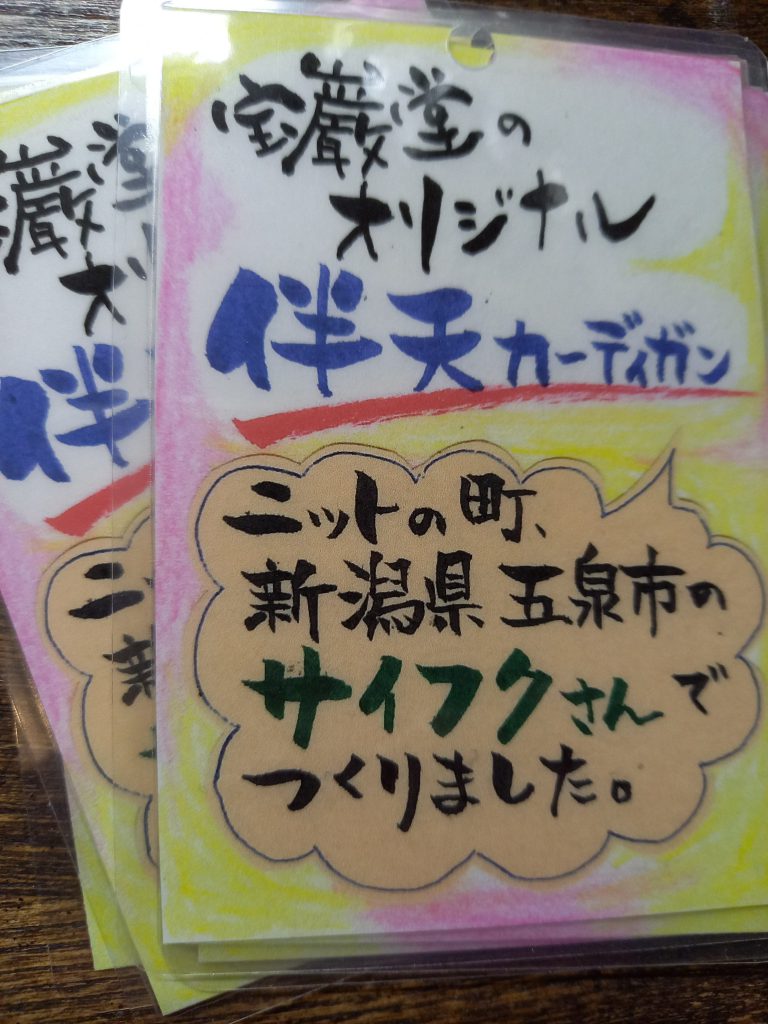 宝巌堂の
オリジナル
伴天カーディガン
ニットの町、
新潟県五泉市の
サイフクさんで
つくりました。
巌堂
オ
伴
ニ
新